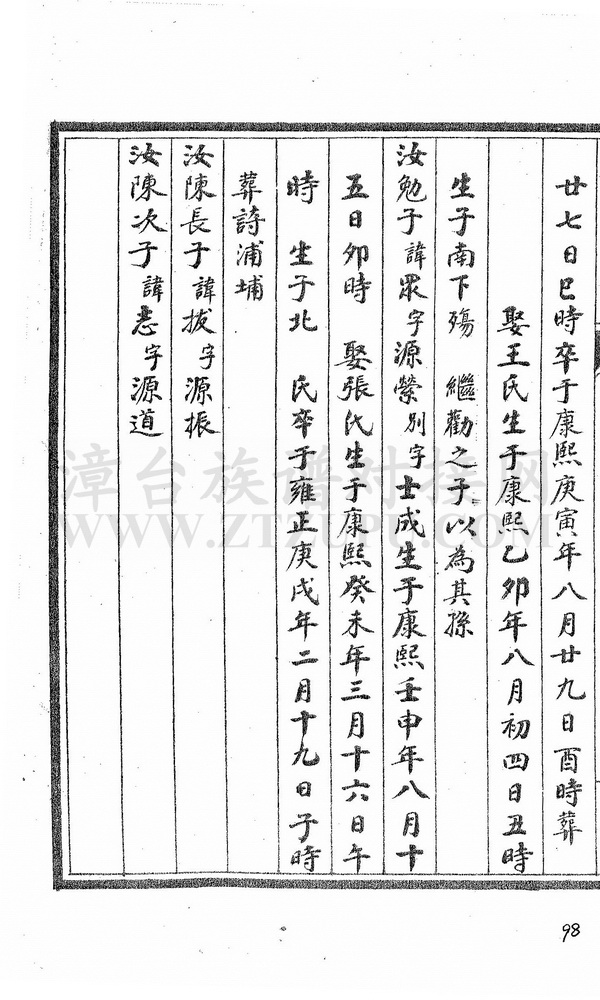 廿七日巳時卒于康熙庚寅年八月廿九日酉時葬
娶王氏生于康熙乙卯年八月初四日丑時
生子南下殤 繼勸之子以為其孫
汝勉子諱眾字源榮別字士成生于康熙壬申年八月十
五日卯時 娶張氏生于康熙癸未年三月十六日午
時 生子北 氏卒于雍正庚戌年二月十九日子時
葬詩浦埔
汝陳長子諱拔字源振
汝陳次子諱志字源道
漳台族谱对接网
WWW.ZTZUPU.COM
98